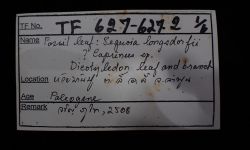 TF No. TF 627-627 2 1/6
Name Fossil leaf: Sequoia longsdorfii
? Carpinus sp.
Dicotyledon leaf and branch
Location
Age Paleogene
Remark 2508